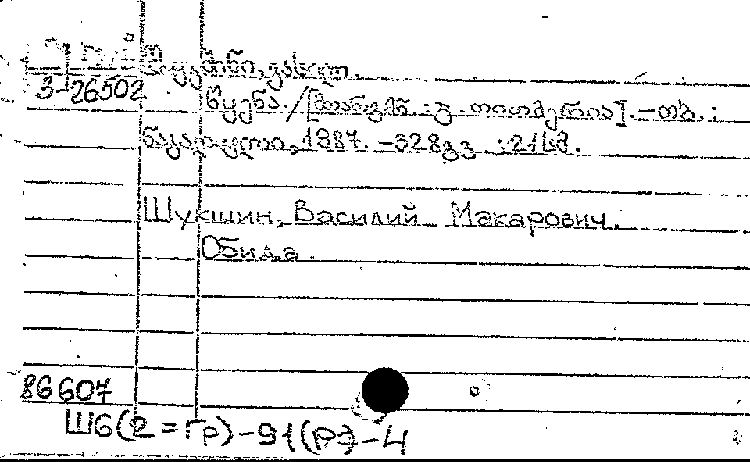 შუკშინი, ვასილ.
3-26502
წყენა. / [მთარგმ.: გ. თოთბერია]. – თბ. :
ნაკადული, 1987. – 328გვ. : 21სმ.
Шукшин, Василий Макарович.
Обида.
86607
Ш6(2=Гр)-91(Р2)-4